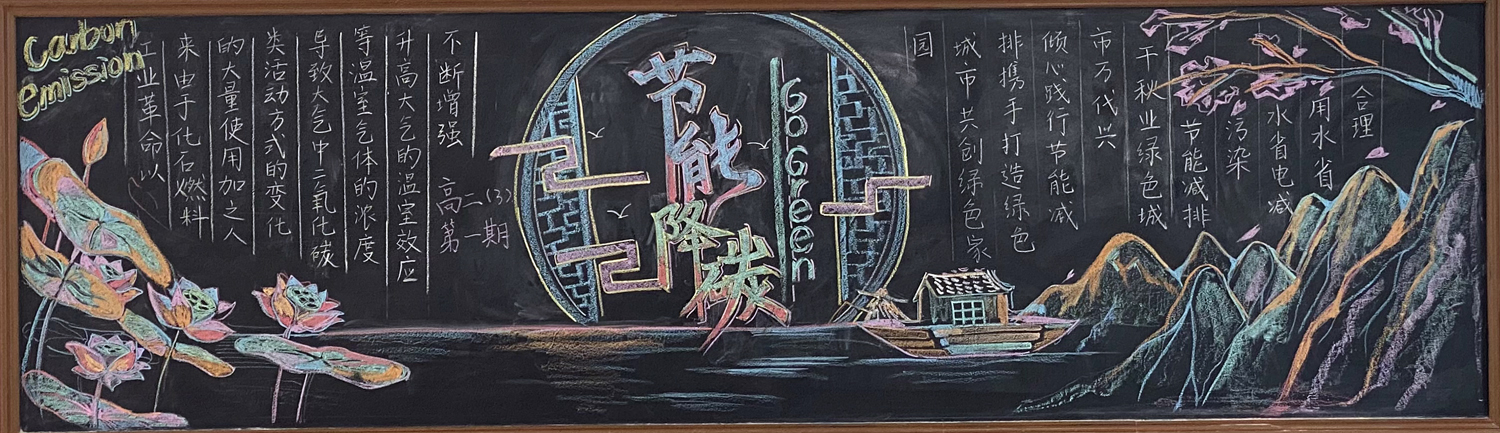 Carbon
emission
工业革命以
来由于化石燃料
的大量使用加之人
类活动方式的变化
导致大气中二氧化碳
等温室气体的浓度
升高大气的温室效应
不断增强
高二(3)
第一期
节能
降碳
Go Green
合理
用水省
水省电减
污染
节能减排
千秋业绿色城
市万代兴
倾心践行节能减
排携手打造绿色
城市共创绿色家
园